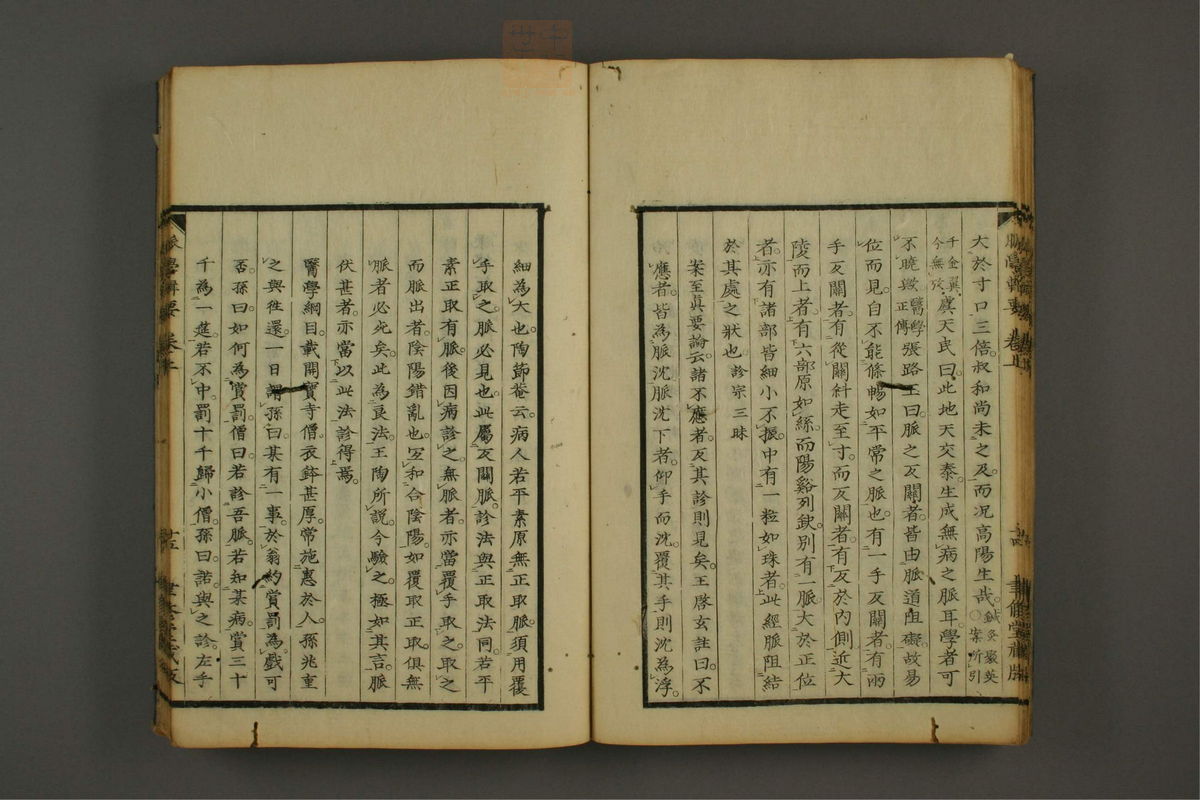 大於寸口三倍。叔和尚未之及。而況高陽生哉。鍼灸聚英○案所引
千金翼。今無攷虞天民曰。此地天交泰。生成無病之脈耳。學者可
不曉歟。醫學正傳張路玉曰。脈之反關者。皆由脈道阻礙。故易
位而見。自不能條暢如平常之脈也。有一手反關者。有兩
手反關者。有從關斜走至寸。而反關者。有反於內側近大
陵而上者。有六部原如絲。而陽谿列缺。別有一脈大於正位
者。亦有諸部皆細小不振。中有一粒如珠者。此經脈阻結
於其處之狀也。診宗三昧
案至眞要論云。諸不應者。反其診則見矣。王啓玄註曰。不
應者。皆為脈沈。脈沈下者。仰手而沈。覆其手則沈為浮。
細為大也。陶節菴云。病人若平素原無正取脈。須用覆
手取之。脈必見也。此屬反關脈。診法與正取法同。若平
素正取有脈。後因病診之無脈者。亦當覆手取之。取之
而脈出者。陰陽錯亂也。宜和合陰陽。如覆取正取俱無
脈者必死矣。此為良法。王陶所說。今驗之。極如其言。脈
伏甚者。亦當以此法診得焉。
醫學綱目。載開寶寺僧。衣鉢甚厚。常施惠於人。孫兆重
之與往還。一日謂孫曰。某有一事於翁。約賞罰為戲可
否。孫曰。如何為賞罰。僧曰。若診吾脈。若知某病。賞三十
千為一筵。若不中。罰十千歸小僧。孫曰。諾。與之診。左手
脈學輯要 卷上
聿脩堂藏版
脈學輯要 卷上